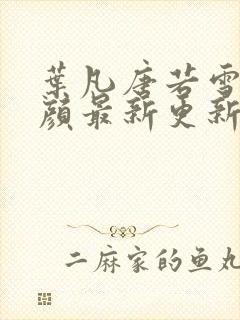 葉凡唐若雪
顔最新更新
二麻家的鱼丸